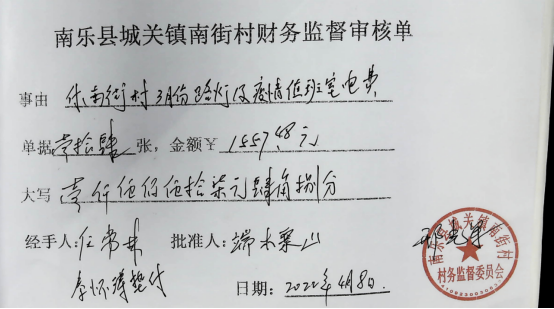 南乐县城关镇南街村财务监督审核单
事由 付南街村3月份路灯及疫情值班室电费
单据壹拾肆张，金额￥1557.48元
大写 壹仟伍佰伍拾柒元肆角捌分
经手人：任常林 批准人：端木梁山
李怀 垫付 日期：2022年4月8日.
南乐县城关镇南街村
村务监督委员会